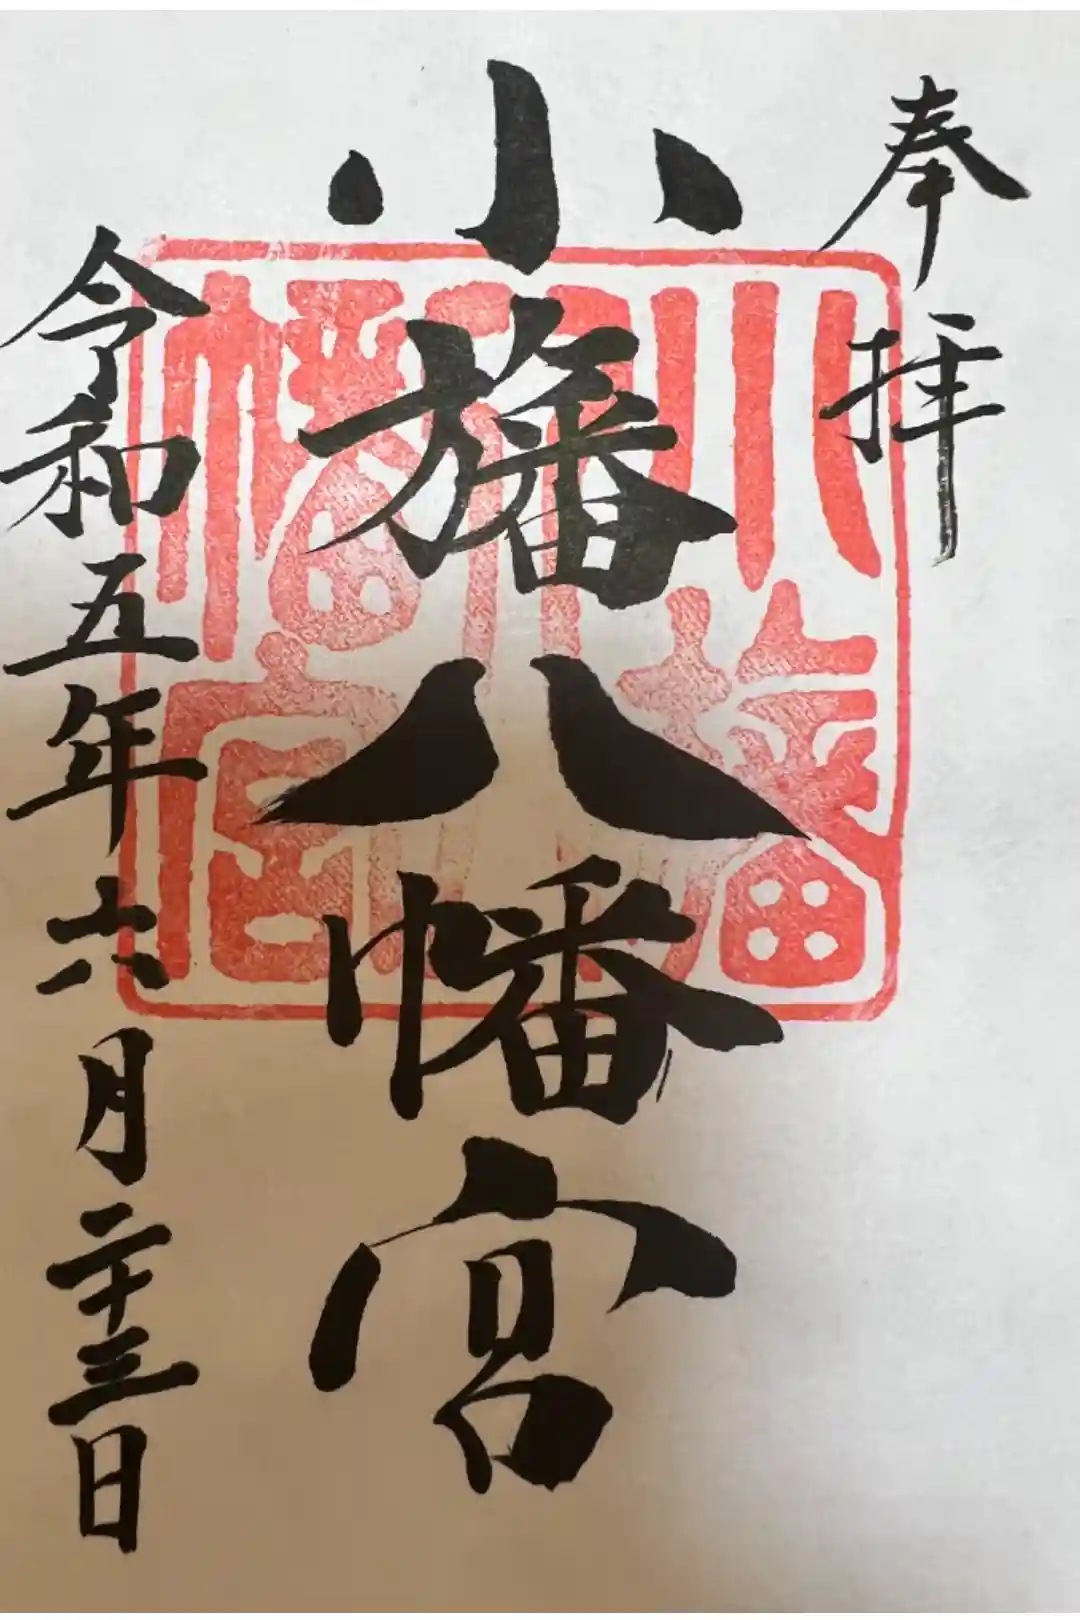 奉拝
小旛八幡宮
令和五年六月二十三日
小旛八幡宮